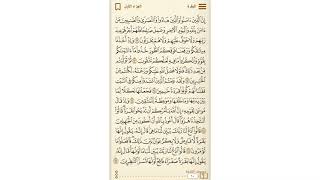 البقرة
الجزء الأول
إن الذين ءامنوا والذين هادوا والنصرى والصبين من
ءامن بالله واليوم الأخر وعمل صلحا فلهم أجرهم عند
ربهم ولا خوف عليهم ولا هم يحزنون ٦٢ وإذ أخذنا
ميثقكم ورفعنا فوقكم الطور خذوا ما ءاتينكم بقوة
واذكروا ما فيه لعلكم تتقون ٦٣ ثم توليتم من بعد ذلك
فلولا فضل الله عليكم ورحمته لكنتم من الخسرين ٦٤
ولقد علمتم الذين اعتدوا منكم في السبت فقلنا لهم كونوا
قردة خسين ٦٥ فجعلنها نكلا لما بين يديها وما
خلفها وموعظة للمتقين ٦٦ وإذ قال موسى لقومه إن
الله يأمركم أن تذبحوا بقرة قالوا أتتخذنا هزوا قال
أعوذ بالله أن أكون من الجهلين ٦٧ قالوا ادع لنا ربك
يبين لنا ما هي قال إنه يقول إنها بقرة لا فارض ولا بكر
عوان بين ذلك فافعلوا ما تؤمرون ٦٨ قالوا ادع لنا
ربك يبين لنا ما لونها قال إنه
يقول إنها بقرة صفراء فاقع لونها تسر النظرين ٦٩